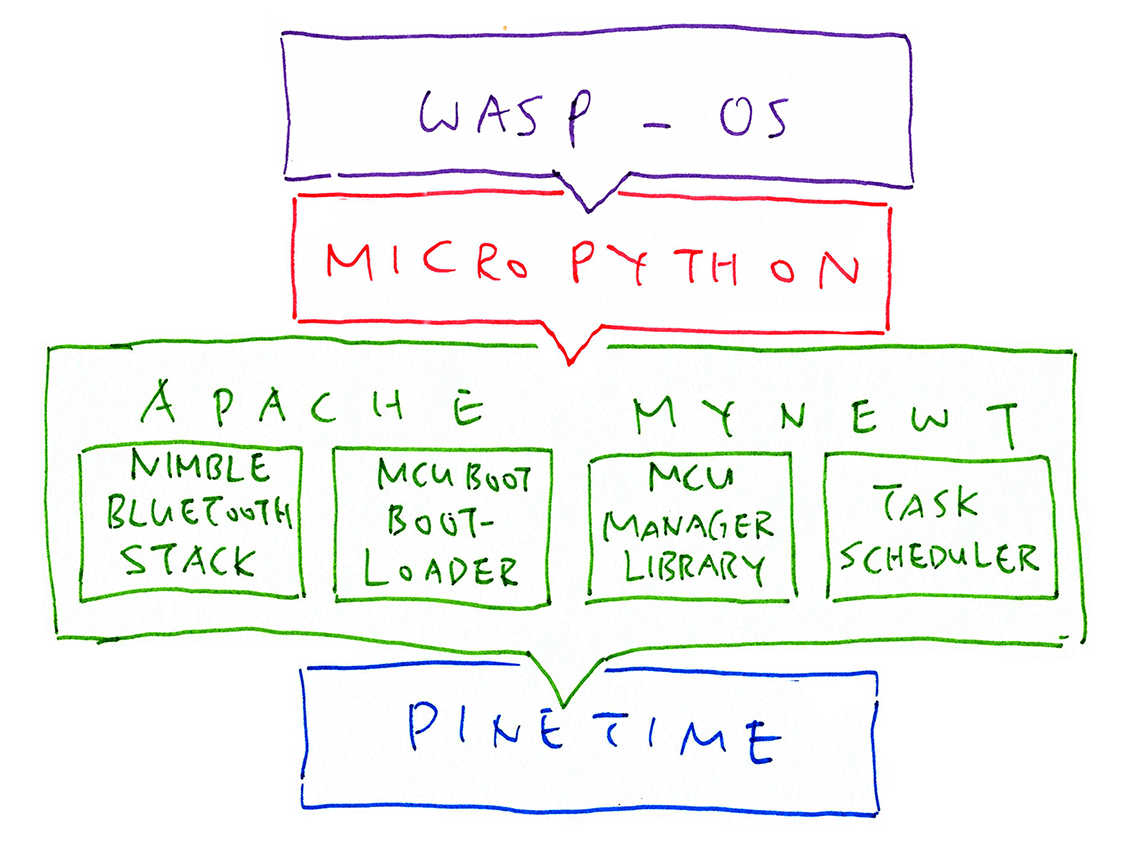 WASP-OS
MICROPYTHON
APACHE MYNEWT
NIMBLE
BLUETOOTH
STACK
MCUBOOT
BOOT-
LOADER
MCU
MANAGER
LIBRARY
TASK
SCHEDULER
PINETIME